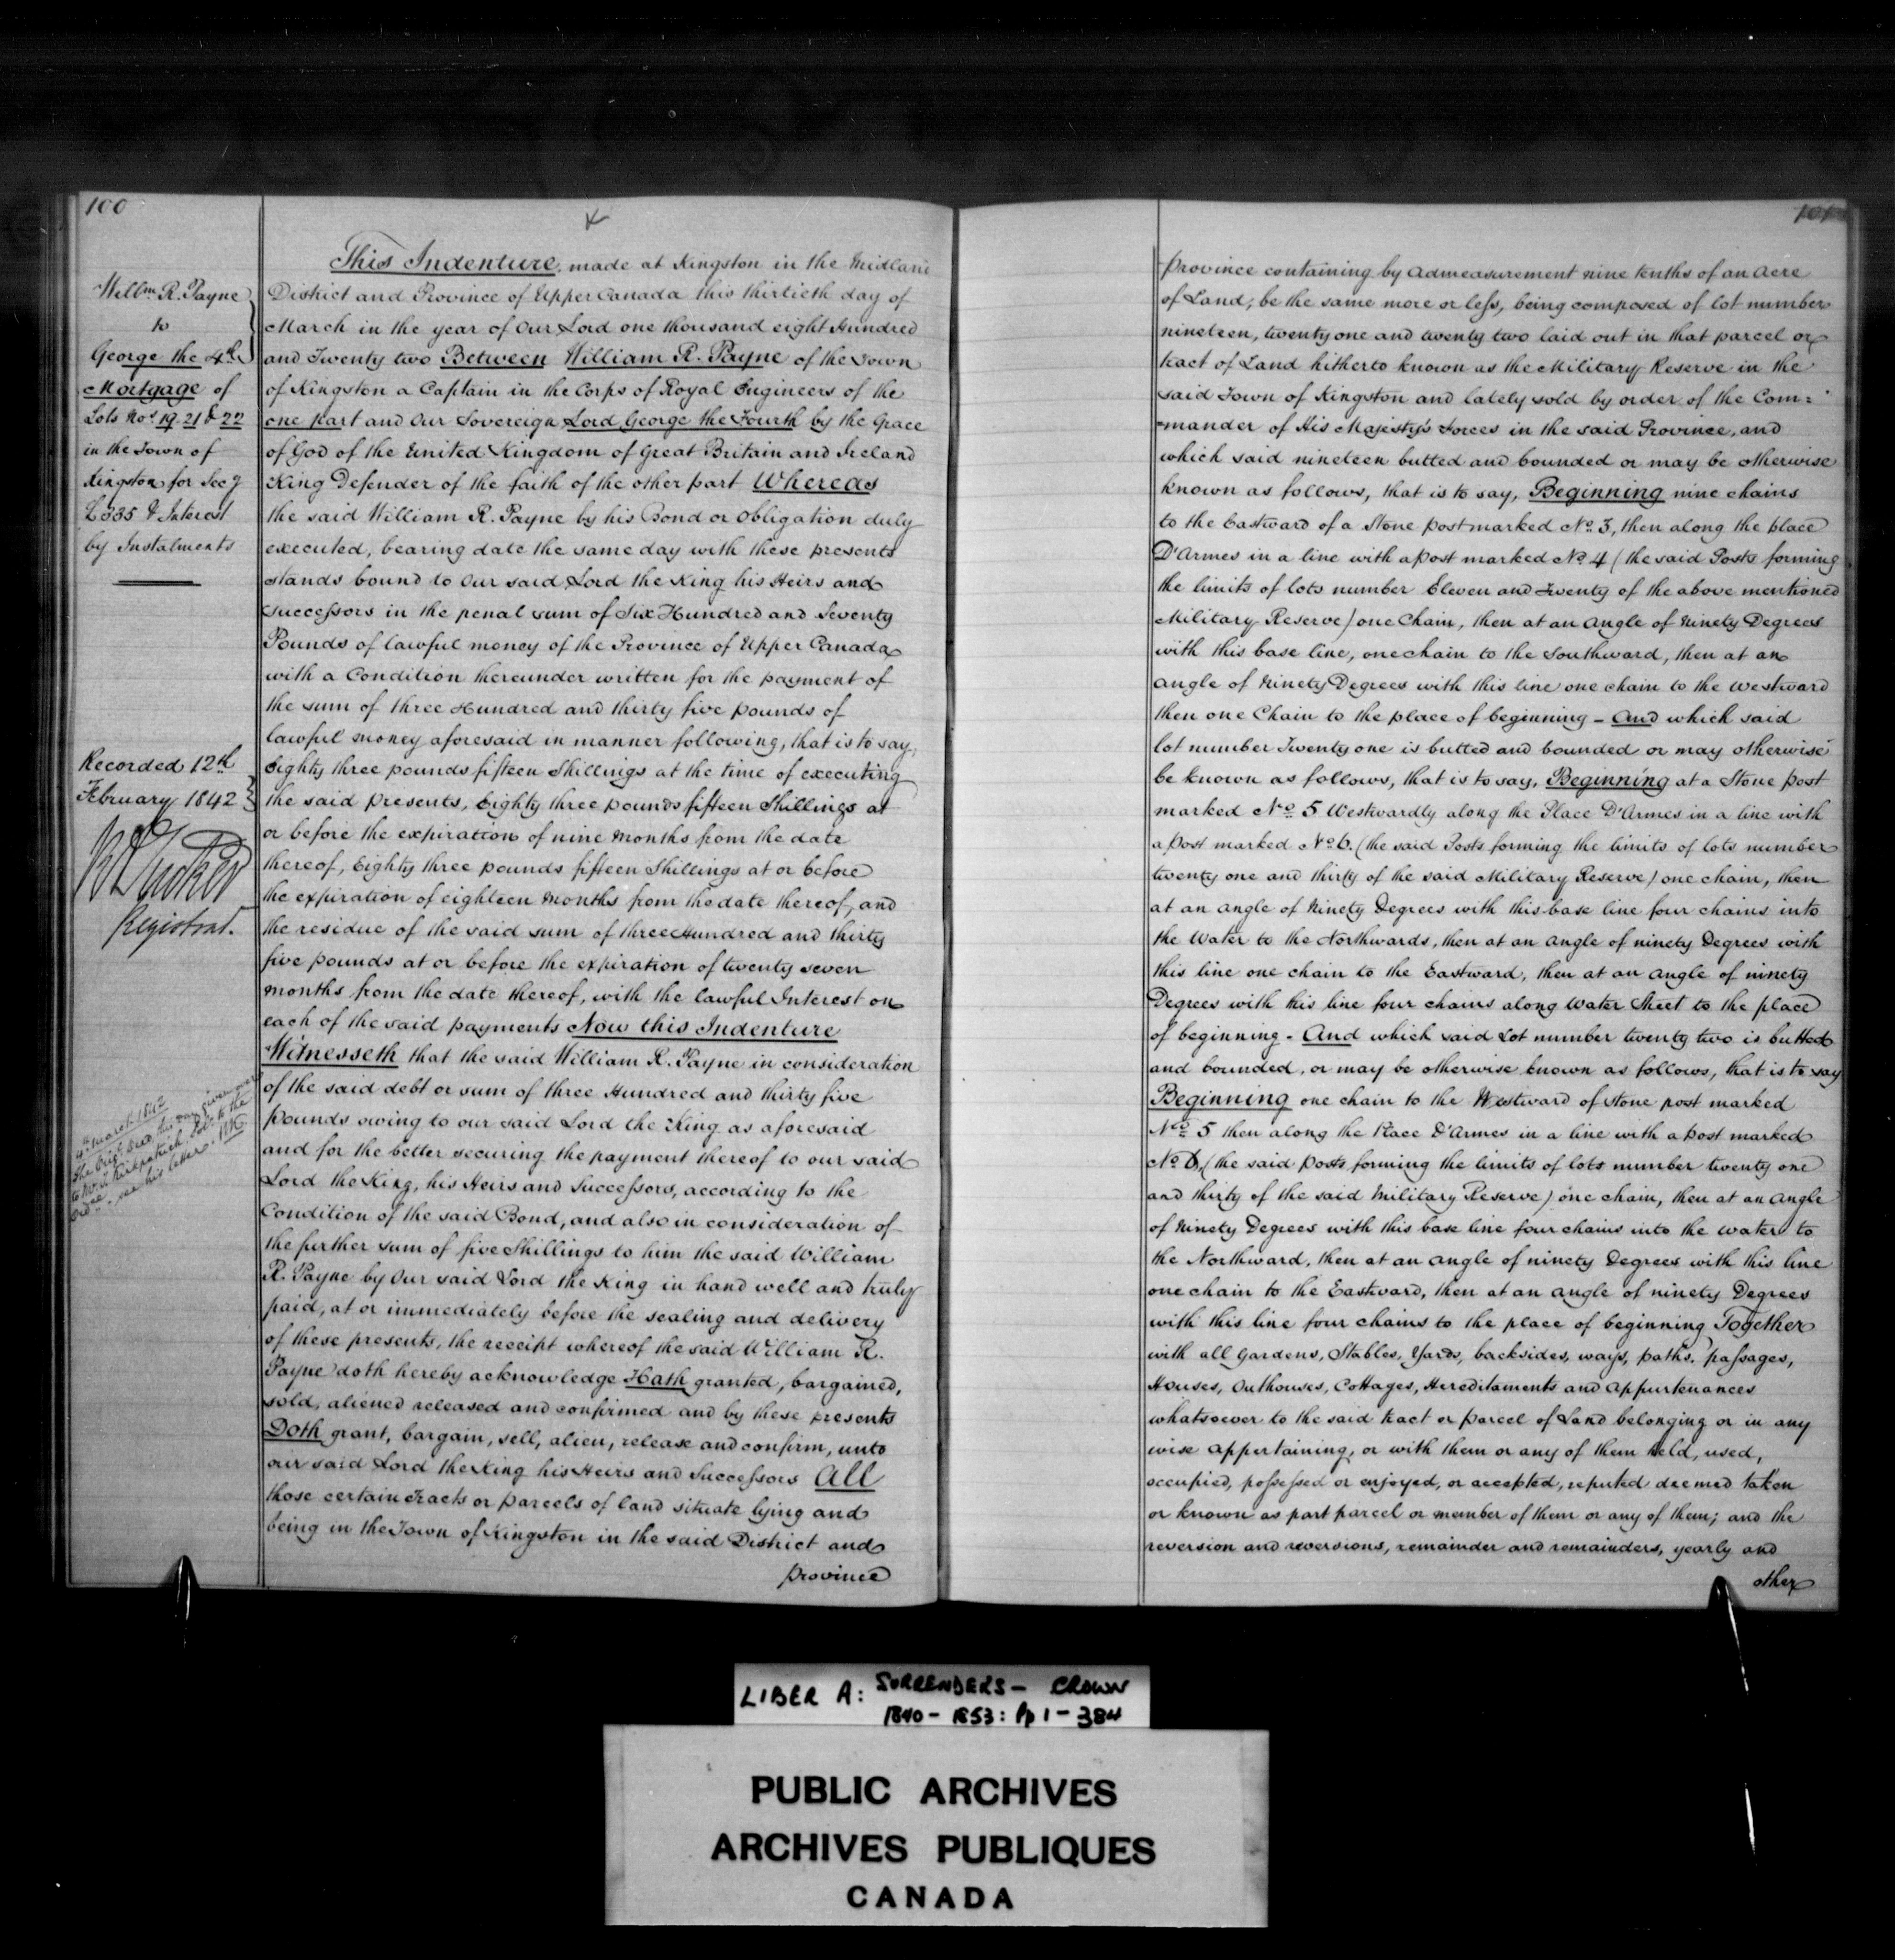 100
Willm R. Payne
to
George the 4th
Mortgage of
Lots Nos 19. 21 & 22
in the Town of
Kingston for Secy
£335 & Interest
by Instalments
Recorded 12th
February 1842
Registrar.
4th March 1842
The Origl Deed this day given over
to Mr. Kirkpatrick, Solr to the
Ordce. see his letter.
This Indenture made at Kingston in the Midland
District and Province of Upper Canada this thirtieth day of
March in the year of Our Lord one thousand eight Hundred
and Twenty two Between William R. Payne of the Town
of Kingston a Captain in the Corps of Royal Engineers of the
one part and Our Sovereign Lord George the Fourth by the Grace
of God of the United Kingdom of Great Britain and Ireland
King Defender of the faith of the other part Whereas
the said William R. Payne by his Bond or Obligation duly
executed, bearing date the same day with these presents
stands bound to Our said Lord the King his Heirs and
successors in the penal sum of Six Hundred and Seventy
Pounds of lawful money of the Province of Upper Canada
with a Condition thereunder written for the payment of
the sum of three Hundred and thirty five pounds of
lawful money aforesaid in manner following, that is to say,
Eighty three pounds fifteen Shillings at the time of executing
the said presents, Eighty three pounds fifteen Shillings at
or before the expiration of nine months from the date
thereof, Eighty three pounds fifteen Shillings at or before
the expiration of eighteen months from the date thereof, and
the residue of the said sum of three Hundred and thirty
five pounds at or before the expiration of twenty seven
months from the date thereof, with the lawful Interest on
each of the said payments Now this Indenture
Witnesseth that the said William R. Payne in consideration
of the said debt or sum of three Hundred and thirty five
pounds owing to our said Lord the King as aforesaid
and for the better securing the payment thereof to our said
Lord the King, his Heirs and Successors, according to the
Condition of the said Bond, and also in consideration of
the further sum of five Shillings to him the said William
R. Payne by Our said Lord the King in hand well and truly
paid, at or immediately before the sealing and delivery
of these presents, the receipt whereof the said William R.
Payne doth hereby acknowledge Hath granted, bargained,
sold, aliened released and confirmed and by these presents
Doth grant, bargain, sell, alien, release and confirm, unto
our said Lord the King his Heirs and Successors All
those certain Tracts or parcels of land situate lying and
being in the Town of Kingston in the said District and
province
101
Province containing by admeasurement nine tenths of an Acre
of Land; be the same more or less, being composed of lot number
nineteen, twenty one and twenty two laid out in that parcel or
tract of Land hitherto known as the Military Reserve in the
said Town of Kingston and lately sold by order of the Com=
=mander of His Majesty's Forces in the said Province, and
which said nineteen butted and bounded or may be otherwise
known as follows, that is to say, Beginning nine chains
to the Eastward of a Stone post marked No. 3, then along the place
D'Armes in a line with a post marked No. 4 (the said Posts forming
the limits of lots number Eleven and Twenty of the above mentioned
Military Reserve) one Chain, then at an angle of Ninety Degrees
with this base line, one chain to the Southward, then at an
angle of Ninety Degrees with this line one chain to the Westward
then one Chain to the place of beginning - And which said
lot number Twenty one is butted and bounded or may otherwise
be known as follows, that is to say, Beginning at a Stone post
marked No. 5 Westwardly along the Place D'Armes in a line with
a Post marked No. 6. (the said Posts forming the limits of lots number
twenty one and thirty of the said Military Reserve) one chain, then
at an angle of Ninety Degrees with this base line four chains into
the Water to the Northwards, then at an angle of ninety Degrees with
this line one chain to the Eastward, then at an angle of ninety
Degrees with this line four chains along Water Street to the place
of beginning - And which said Lot number twenty two is butted
and bounded, or may be otherwise known as follows, that is to say
Beginning one chain to the Westward of stone post marked
No. 5 then along the Place D'Armes in a line with a post marked
No. 6, (the said posts forming the limits of lots number twenty one
and thirty of the said Military Reserve) one chain, then at an angle
of Ninety Degrees with this base line four chains into the water to
the Northward, then at an angle of ninety Degrees with this line
one chain to the Eastward, then at an angle of ninety Degrees
with this line four chains to the place of beginning Together
with all Gardens, Stables, Yards, backsides, ways, paths, passages,
Houses, Outhouses, Cottages, Hereditaments and appurtenances
whatsoever to the said tract or parcel of Land belonging or in any
wise appertaining, or with them or any of them held, used,
occupied, possessed or enjoyed, or accepted, reputed deemed taken
or known as part parcel or member of them or any of them; and the
reversion and reversions, remainder and remainders, yearly and
other
LIBER A: SURRENDERS - CROWN
1840 - 1853: Pp 1 - 384
PUBLIC ARCHIVES
ARCHIVES PUBLIQUES
CANADA